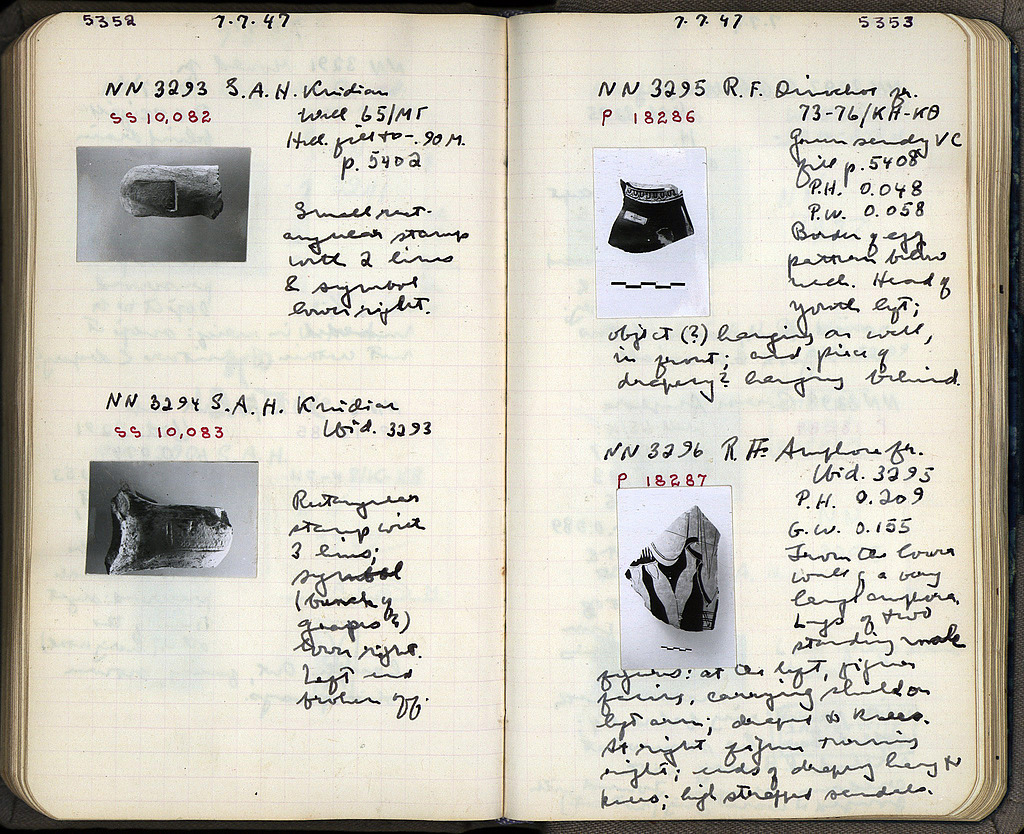 5352 7.7.47
NN 3293 S.A.H. Knidian
SS 10,082 Well 65/ΜΓ
Hell. fill to -.90 M.
p. 5402
Small rect-
angular stamp
with 2 lines
& symbol
lower right.
NN 3294 S.A.H. Knidian
SS 10,083 Ibid. 3293
Rectangular
stamp with
3 lines;
symbol
(bunch of
grapes?)
lower right.
Left end
broken off.
7.7.47 5353
NN 3295 R.F. fr.
P 18286 73-76/ΚΗ-ΚΘ
sandy VC
fill p. 5408
P.H. 0.048
P.W. 0.058
Border of egg
pattern below
neck. Head of
youth left;
object (?) hanging on wall,
in front; and piece of
drapery? hanging behind.
NN 3296 R.F. Amphora fr.
P 18287 Ibid. 3295
P.H. 0.209
G.W. 0.155
From the lower
wall of a very
large amphora.
Legs of two
standing male
figures: at the left, figure
facing, carrying shield on
left arm; draped to knees.
At right figure running
right; ends of drapery hang to
knees; high strapped sandals.